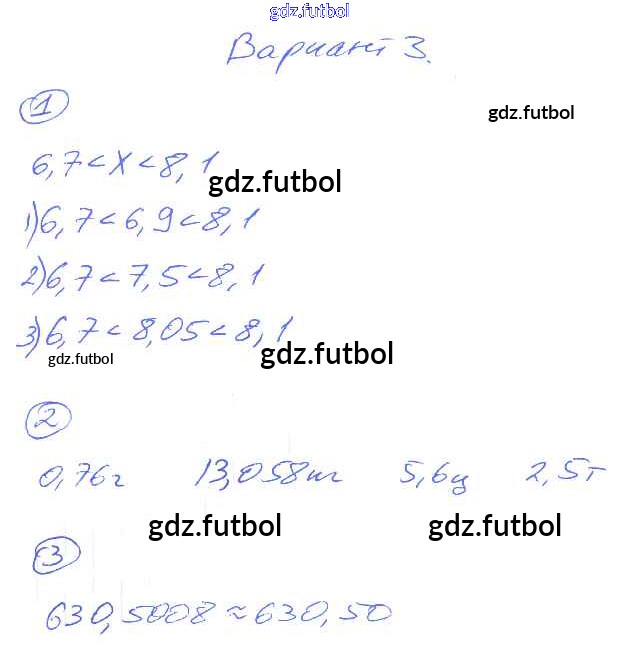 gdz.futbol
Вариант 3.
1
gdz.futbol
6,7<x<8,1
gdz.futbol
1) 6,7<6,9<8,1
2) 6,7<7,5<8,1
3) 6,7<8,05<8,1
gdz.futbol
gdz.futbol
2
0,76г 13,058кг 5,6ц 2,5т
gdz.futbol gdz.futbol
3
630,5008≈630,50